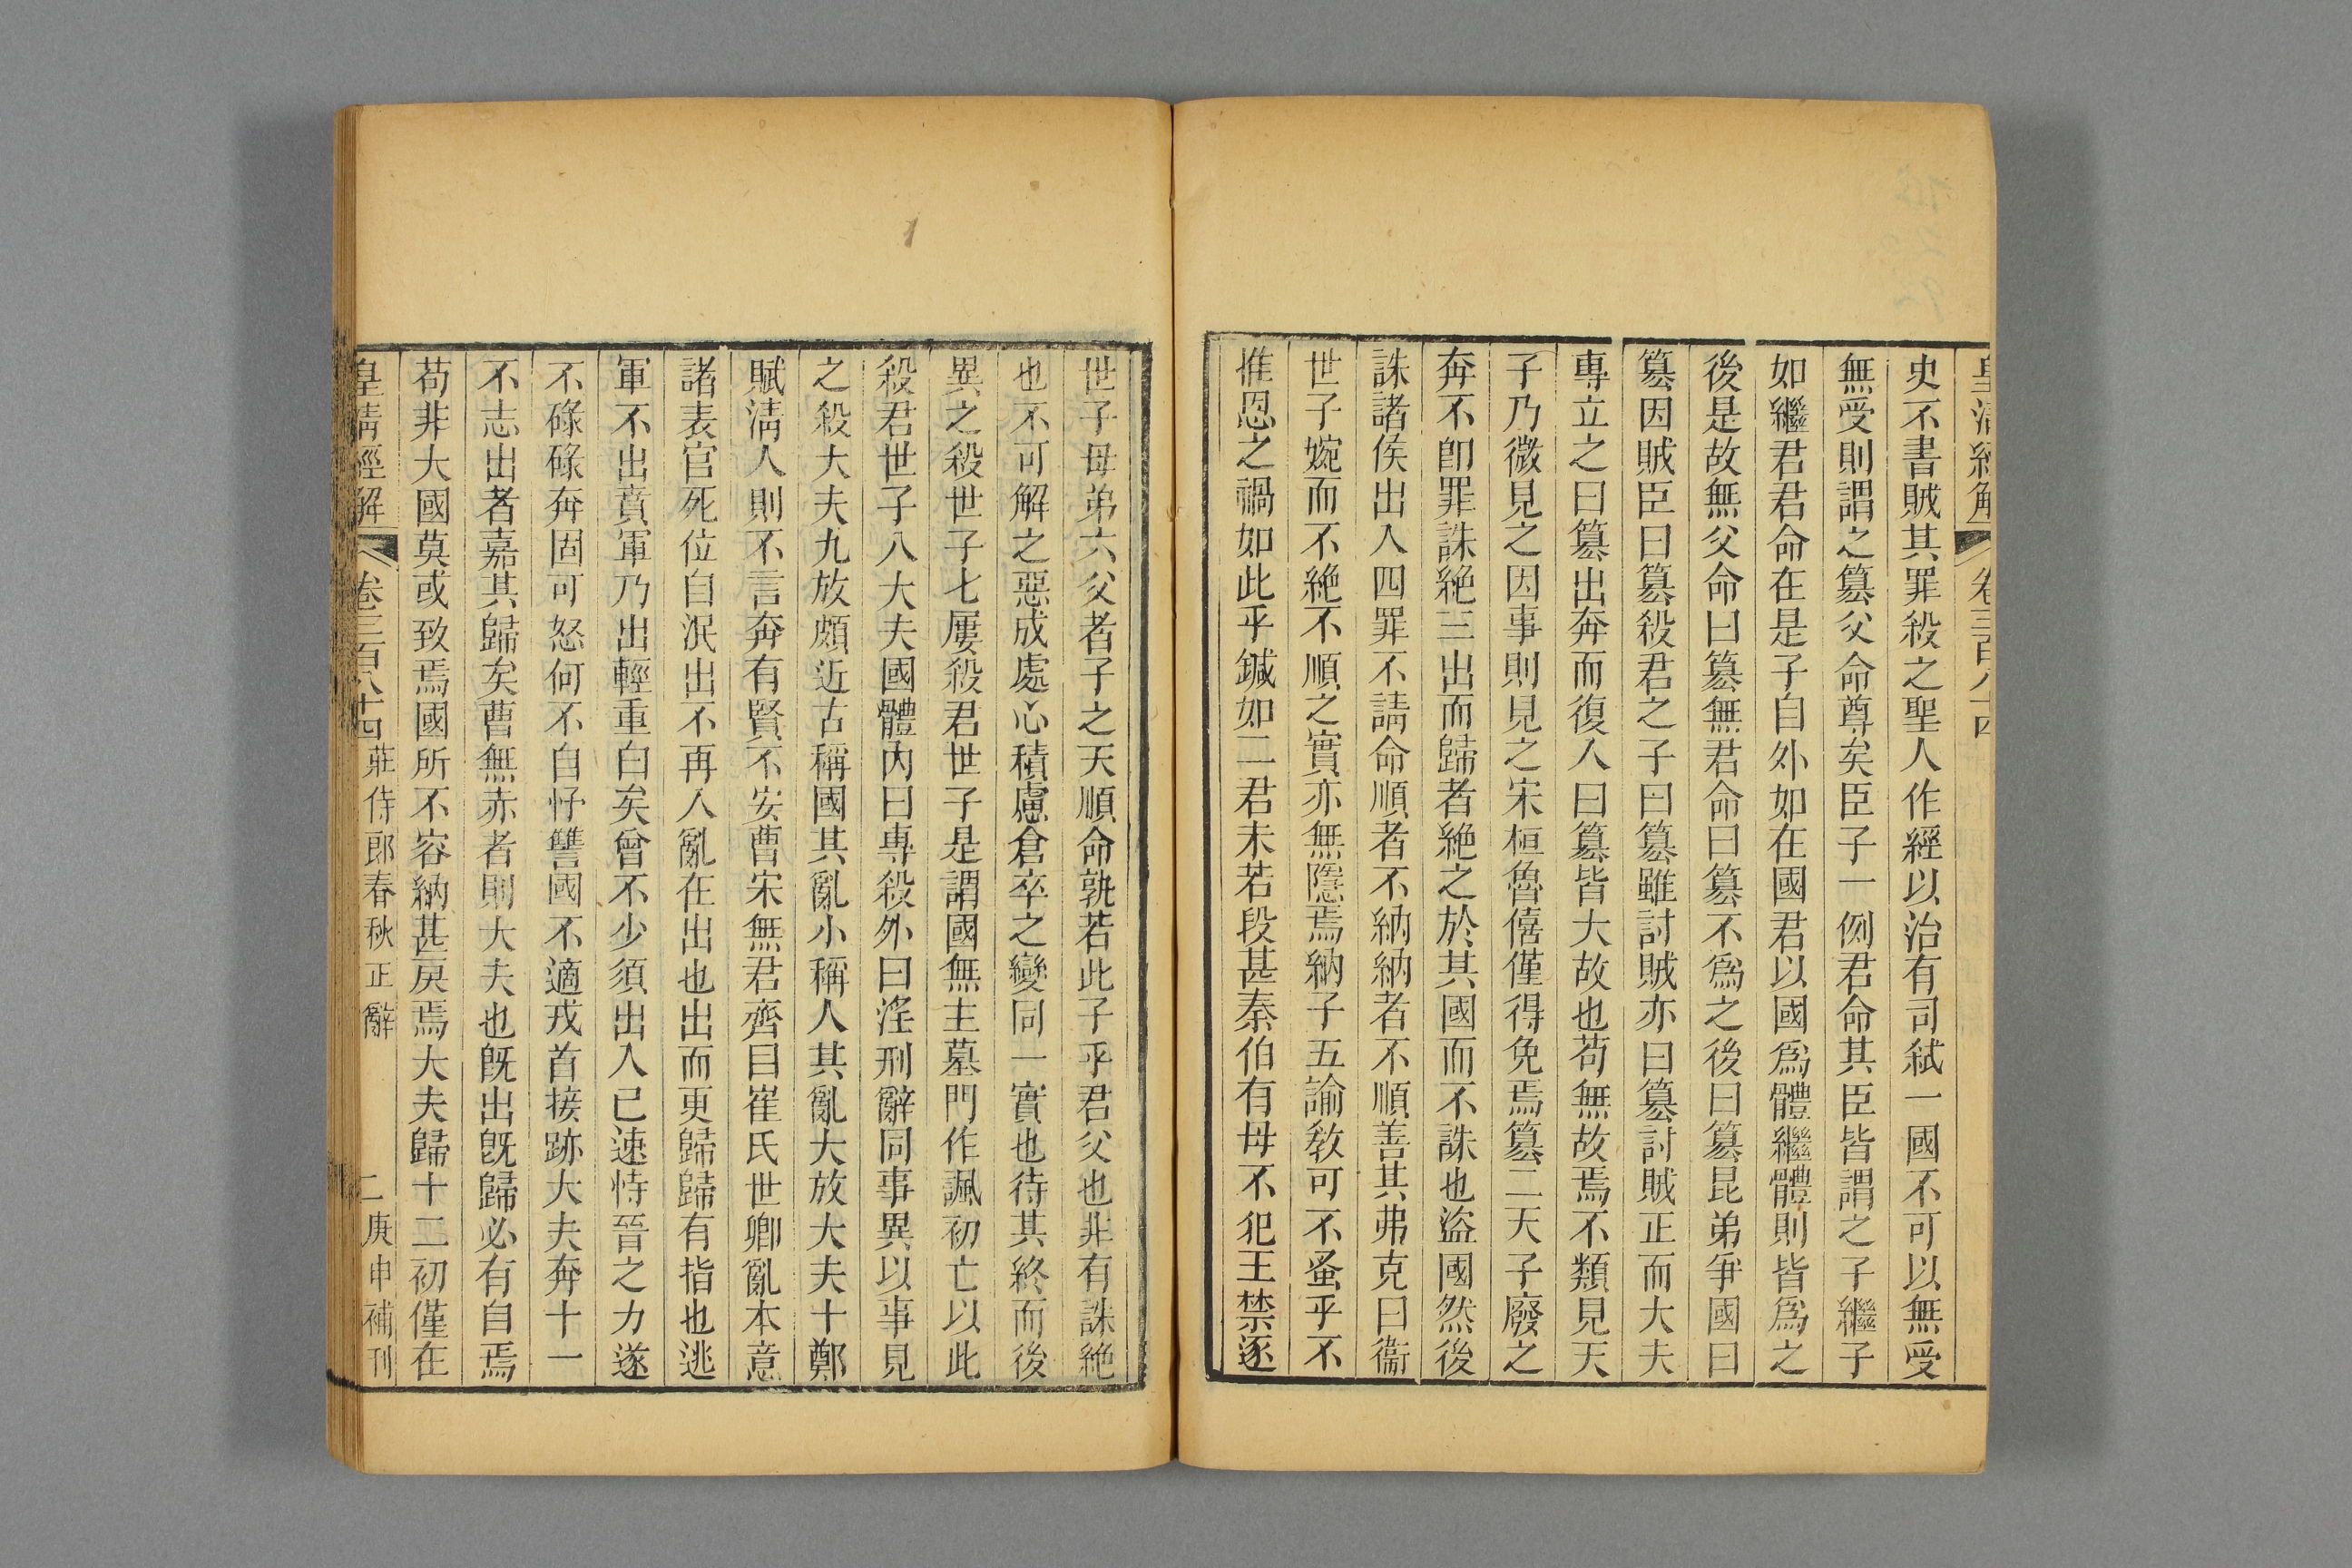 皇清經解 卷三百八十四
史不書賊其罪殺之聖人作經以治有司弑一國不可以無受
無受則謂之簒父命尊矣臣子一例君命其臣皆謂之子繼子
如繼君君命在是子自外如在國君以國爲體繼體則皆爲之
後是故無父命曰簒無君命曰簒不爲之後曰簒昆弟爭國曰
簒因賊臣曰簒殺君之子曰簒雖討賊亦曰簒討賊正而大夫
專立之曰簒出奔而復入曰簒皆大故也苟無故焉不類見天
子乃微見之因事則見之宋桓魯僖僅得免焉簒二天子廢之
奔不卽罪誅絶三出而歸者絶之於其國而不誅也盜國然後
誅諸侯出入四罪不請命順者不納納者不順善其弗克曰衞
世子婉而不絶不順之實亦無隱焉納子五諭敎可不蚤乎不
推恩之禍如此乎鍼如二君未若段甚秦伯有母不犯王禁逐
世子母弟六父者子之天順命孰若此子乎君父也非有誅絶
也不可解之惡成處心積慮倉卒之變同一實也待其終而後
異之殺世子七屢殺君世子是謂國無主墓門作諷初亡以此
殺君世子八大夫國體內曰專殺外曰淫刑辭同事異以事見
之殺大夫九放頗近古稱國其亂小稱人其亂大放大夫十鄭
賦淸人則不言奔有賢不安曹宋無君齊目崔氏世卿亂本意
諸表官死位自泯出不再入亂在出也出而更歸歸有指也逃
軍不出賁軍乃出輕重白矣曾不少須出入已速恃晉之力遂
不碌碌奔固可怒何不自忬讐國不適戎首接跡大夫奔十一
不志出者嘉其歸矣曹無赤者則大夫也旣出旣歸必有自焉
苟非大國莫或致焉國所不容納甚戾焉大夫歸十二初僅在
皇清經解 卷三百八十四 莊侍郎春秋正辭 二 庚申補刊